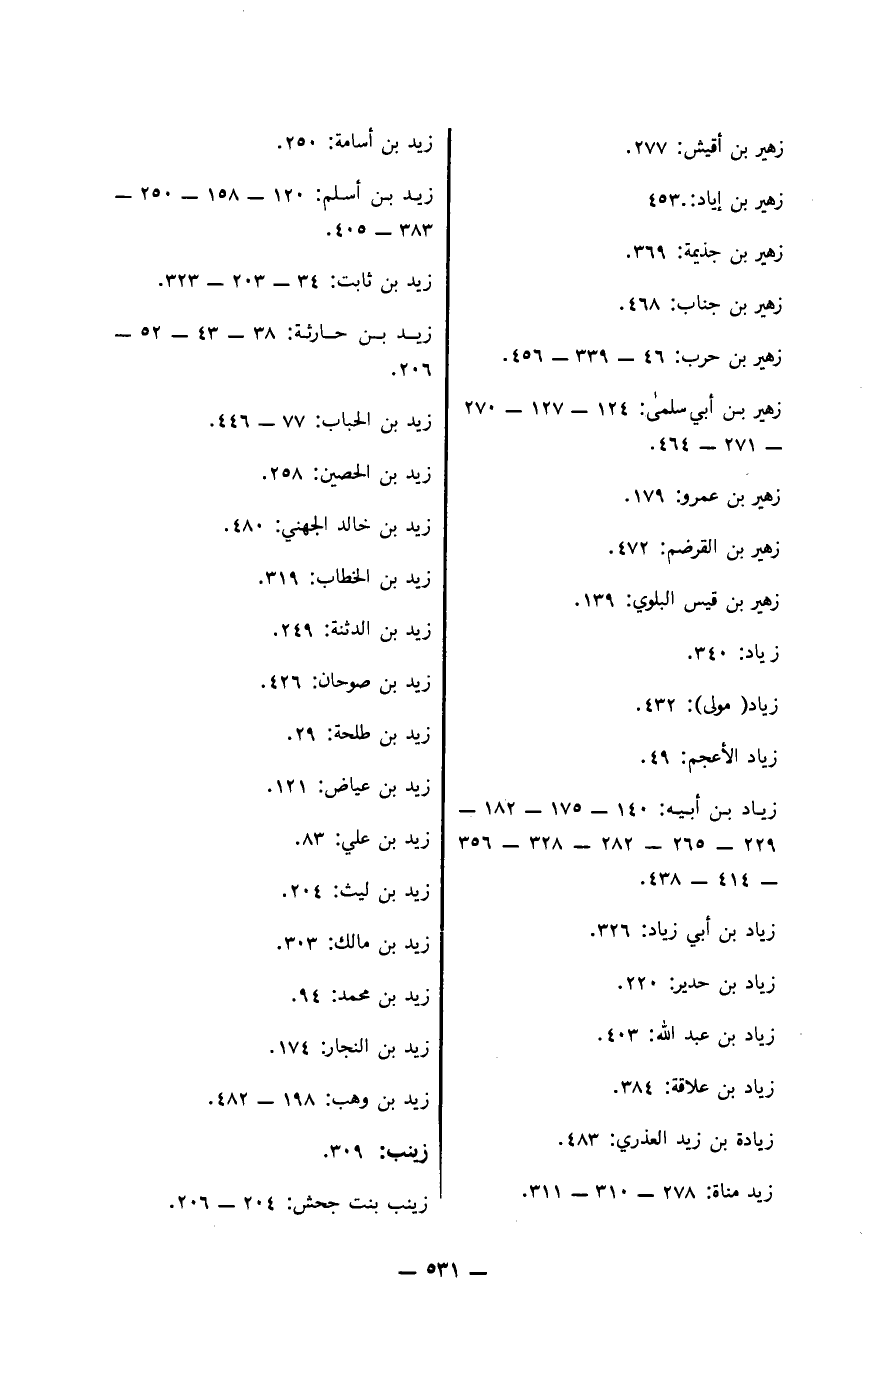 زهير بن أقيش: ٢٧٧.
زهير بن إياد:.٤٥٣
زهير بن جذيمة: ٣٦٩.
زهير بن جناب: ٤٦٨.
زهير بن حرب: ٤٦ — ٣٣٩ — ٤٥٦.
زهير بن أبي سلمىٰ: ١٢٤ — ١٢٧ — ٢٧٠
— ٢٧١ — ٤٦٤.
زهير بن عمرو: ١٧٩.
زهير بن القرضم: ٤٧٢.
زهير بن قيس البلوي: ١٣٩.
زياد: ٣٤٠.
زياد( مولى): ٤٣٢.
زياد الأعجم: ٤٩.
زياد بن أبيه: ١٤٠ — ١٧٥ — ١٨٢ —
٢٢٩ — ٢٦٥ — ٢٨٢ — ٣٢٨ — ٣٥٦
— ٤١٤ — ٤٣٨.
زياد بن أبي زياد: ٣٢٦.
زياد بن حدير: ٢٢٠.
زياد بن عبد الله: ٤٠٣.
زياد بن علاقة: ٣٨٤.
زيادة بن زيد العذري: ٤٨٣.
زيد مناة: ٢٧٨ — ٣١٠ — ٣١١.
زيد بن أسامة: ٢٥٠.
زيد بن أسلم: ١٢٠ — ١٥٨ — ٢٥٠ —
٣٨٣ — ٤٠٥.
زيد بن ثابت: ٣٤ — ٢٠٣ — ٣٢٣.
زيد بن حارثة: ٣٨ — ٤٣ — ٥٢ —
٢٠٦.
زيد بن الحباب: ٧٧ — ٤٤٦.
زيد بن الحصين: ٢٥٨.
زيد بن خالد الجهني: ٤٨٠.
زيد بن الخطاب: ٣١٩.
زيد بن الدثنة: ٢٤٩.
زيد بن صوحان: ٤٢٦.
زيد بن طلحة: ٢٩.
زيد بن عياض: ١٢١.
زيد بن علي: ٨٣.
زيد بن ليث: ٢٠٤.
زيد بن مالك: ٣٠٣.
زيد بن محمد: ٩٤.
زيد بن النجار: ١٧٤.
زيد بن وهب: ١٩٨ — ٤٨٢.
زينب: ٣٠٩.
زينب بنت جحش: ٢٠٤ — ٢٠٦.
— ٥٣١ —